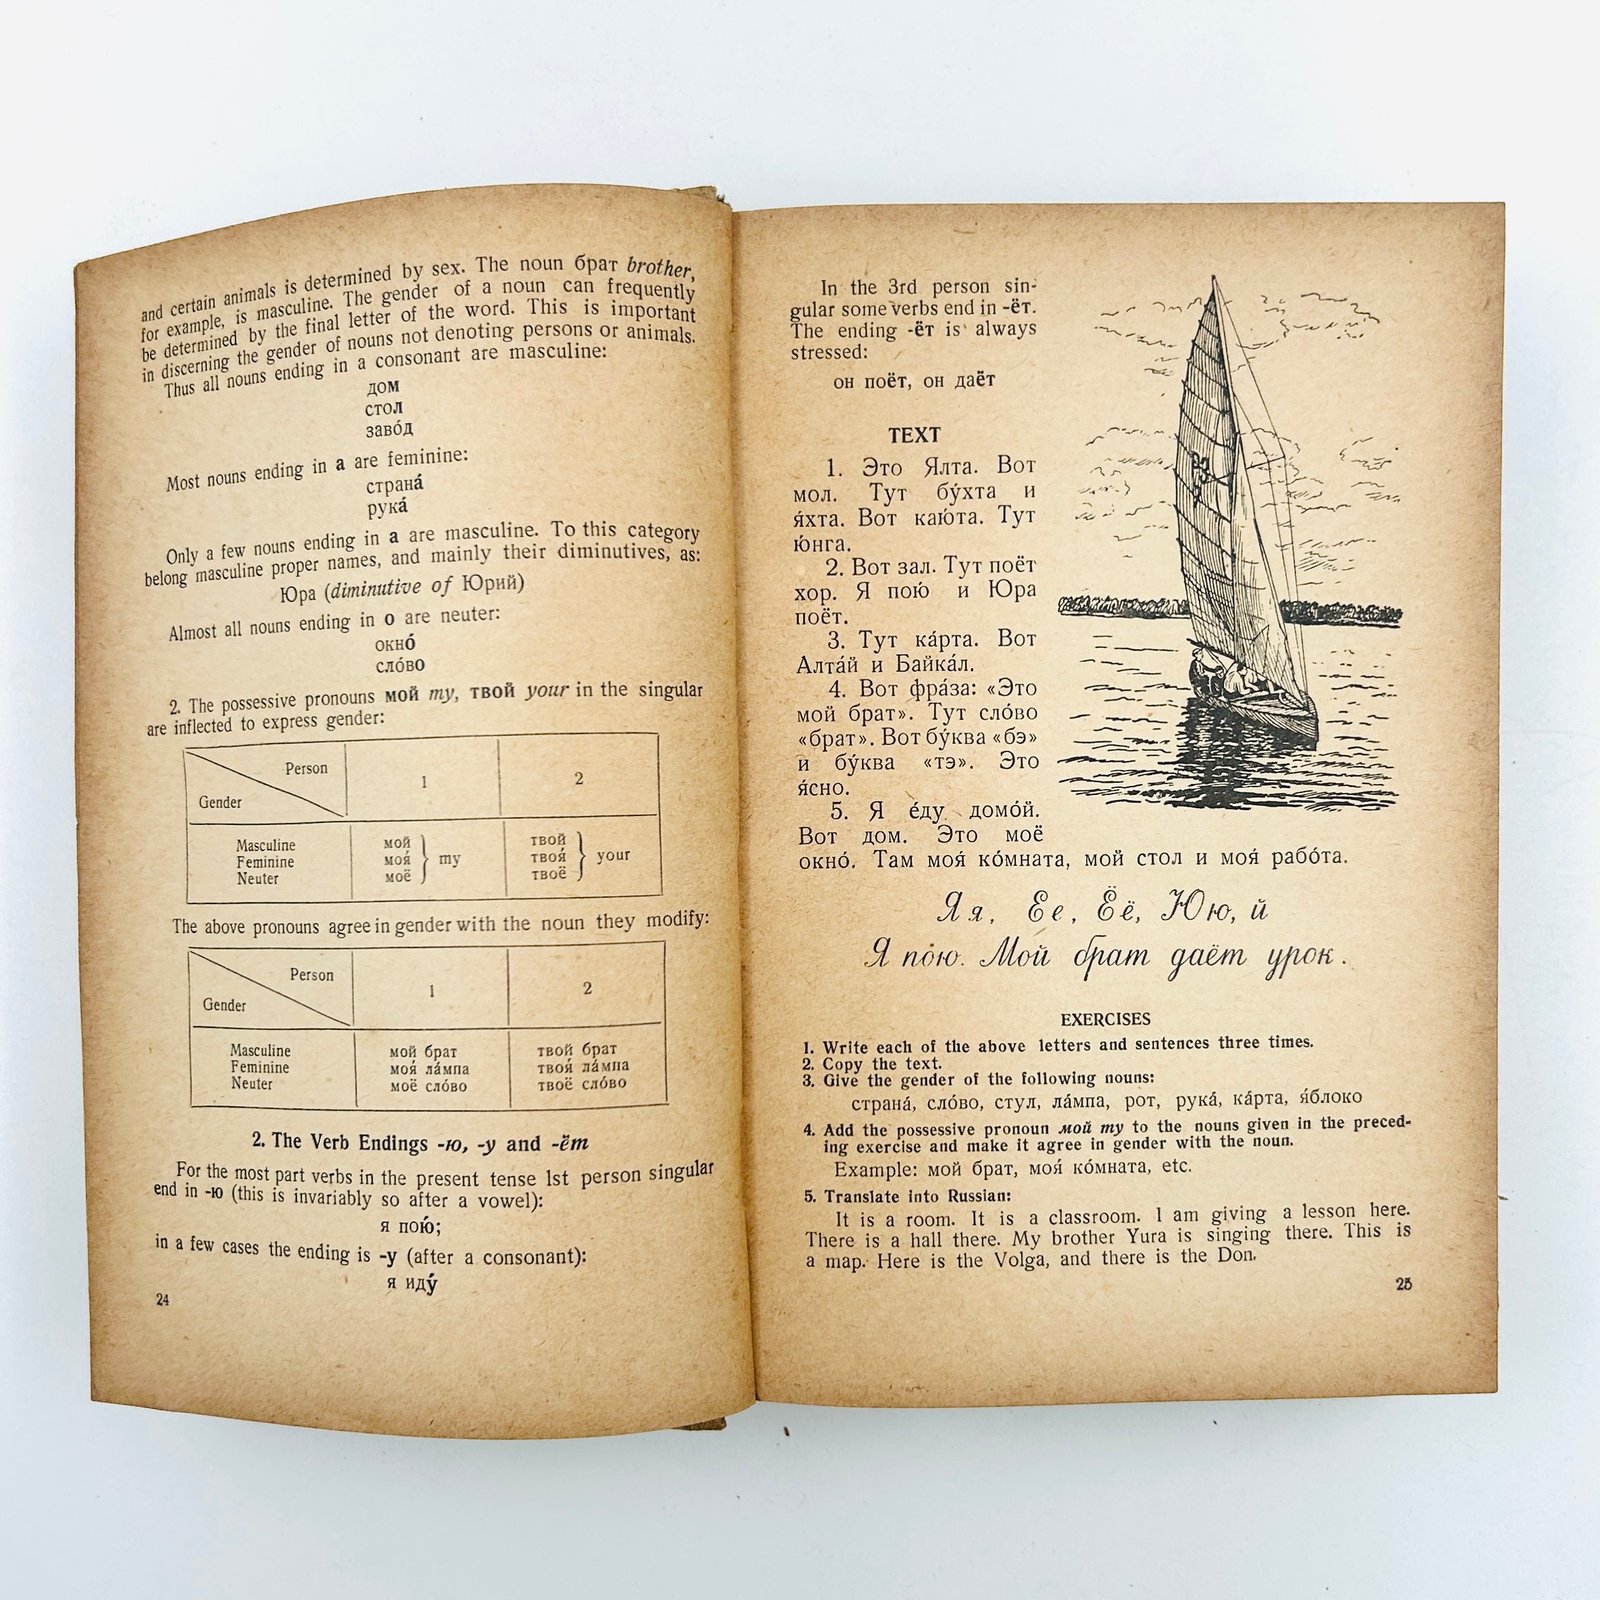 and certain animals is determined by sex. The noun брат brother,
for example, is masculine. The gender of a noun can frequently
be determined by the final letter of the word. This is important
in discerning the gender of nouns not denoting persons or animals.
Thus all nouns ending in a consonant are masculine:
дом
стол
заво́д
Most nouns ending in а are feminine:
страна́
рука́
Only a few nouns ending in а are masculine. To this category
belong masculine proper names, and mainly their diminutives, as:
Юра (diminutive of Юрий)
Almost all nouns ending in о are neuter:
окно́
сло́во
2. The possessive pronouns мой my, твой your in the singular
are inflected to express gender:
Person
Gender
1
2
Masculine мой твой
Feminine моя́ my твоя́ your
Neuter моё твоё
The above pronouns agree in gender with the noun they modify:
Person
Gender
1
2
Masculine мой брат твой брат
Feminine моя́ ла́мпа твоя́ ла́мпа
Neuter моё сло́во твоё сло́во
2. The Verb Endings -ю, -у and -ёт
For the most part verbs in the present tense 1st person singular
end in -ю (this is invariably so after a vowel):
я пою́;
in a few cases the ending is -у (after a consonant):
я иду́
24
In the 3rd person sin-
gular some verbs end in -ёт.
The ending -ёт is always
stressed:
он поёт, он даёт
TEXT
1. Это Ялта. Вот
мол. Тут бу́хта и
я́хта. Вот каю́та. Тут
ю́нга.
2. Вот зал. Тут поёт
хор. Я пою́ и Юра
поёт.
3. Тут ка́рта. Вот
Алта́й и Байка́л.
4. Вот фра́за: «Это
мой брат». Тут сло́во
«брат». Вот бу́ква «бэ»
и бу́ква «тэ». Это
я́сно.
5. Я е́ду домо́й.
Вот дом. Это моё
окно́. Там моя́ ко́мната, мой стол и моя́ рабо́та.
Я я, Е е, Ё ё, Ю ю, й
Я пою. Мой брат даёт урок.
EXERCISES
1. Write each of the above letters and sentences three times.
2. Copy the text.
3. Give the gender of the following nouns:
страна́, сло́во, стул, ла́мпа, рот, рука́, ка́рта, я́блоко
4. Add the possessive pronoun мой my to the nouns given in the preced-
ing exercise and make it agree in gender with the noun.
Example: мой брат, моя́ ко́мната, etc.
5. Translate into Russian:
It is a room. It is a classroom. I am giving a lesson here.
There is a hall there. My brother Yura is singing there. This is
a map. Here is the Volga, and there is the Don.
25